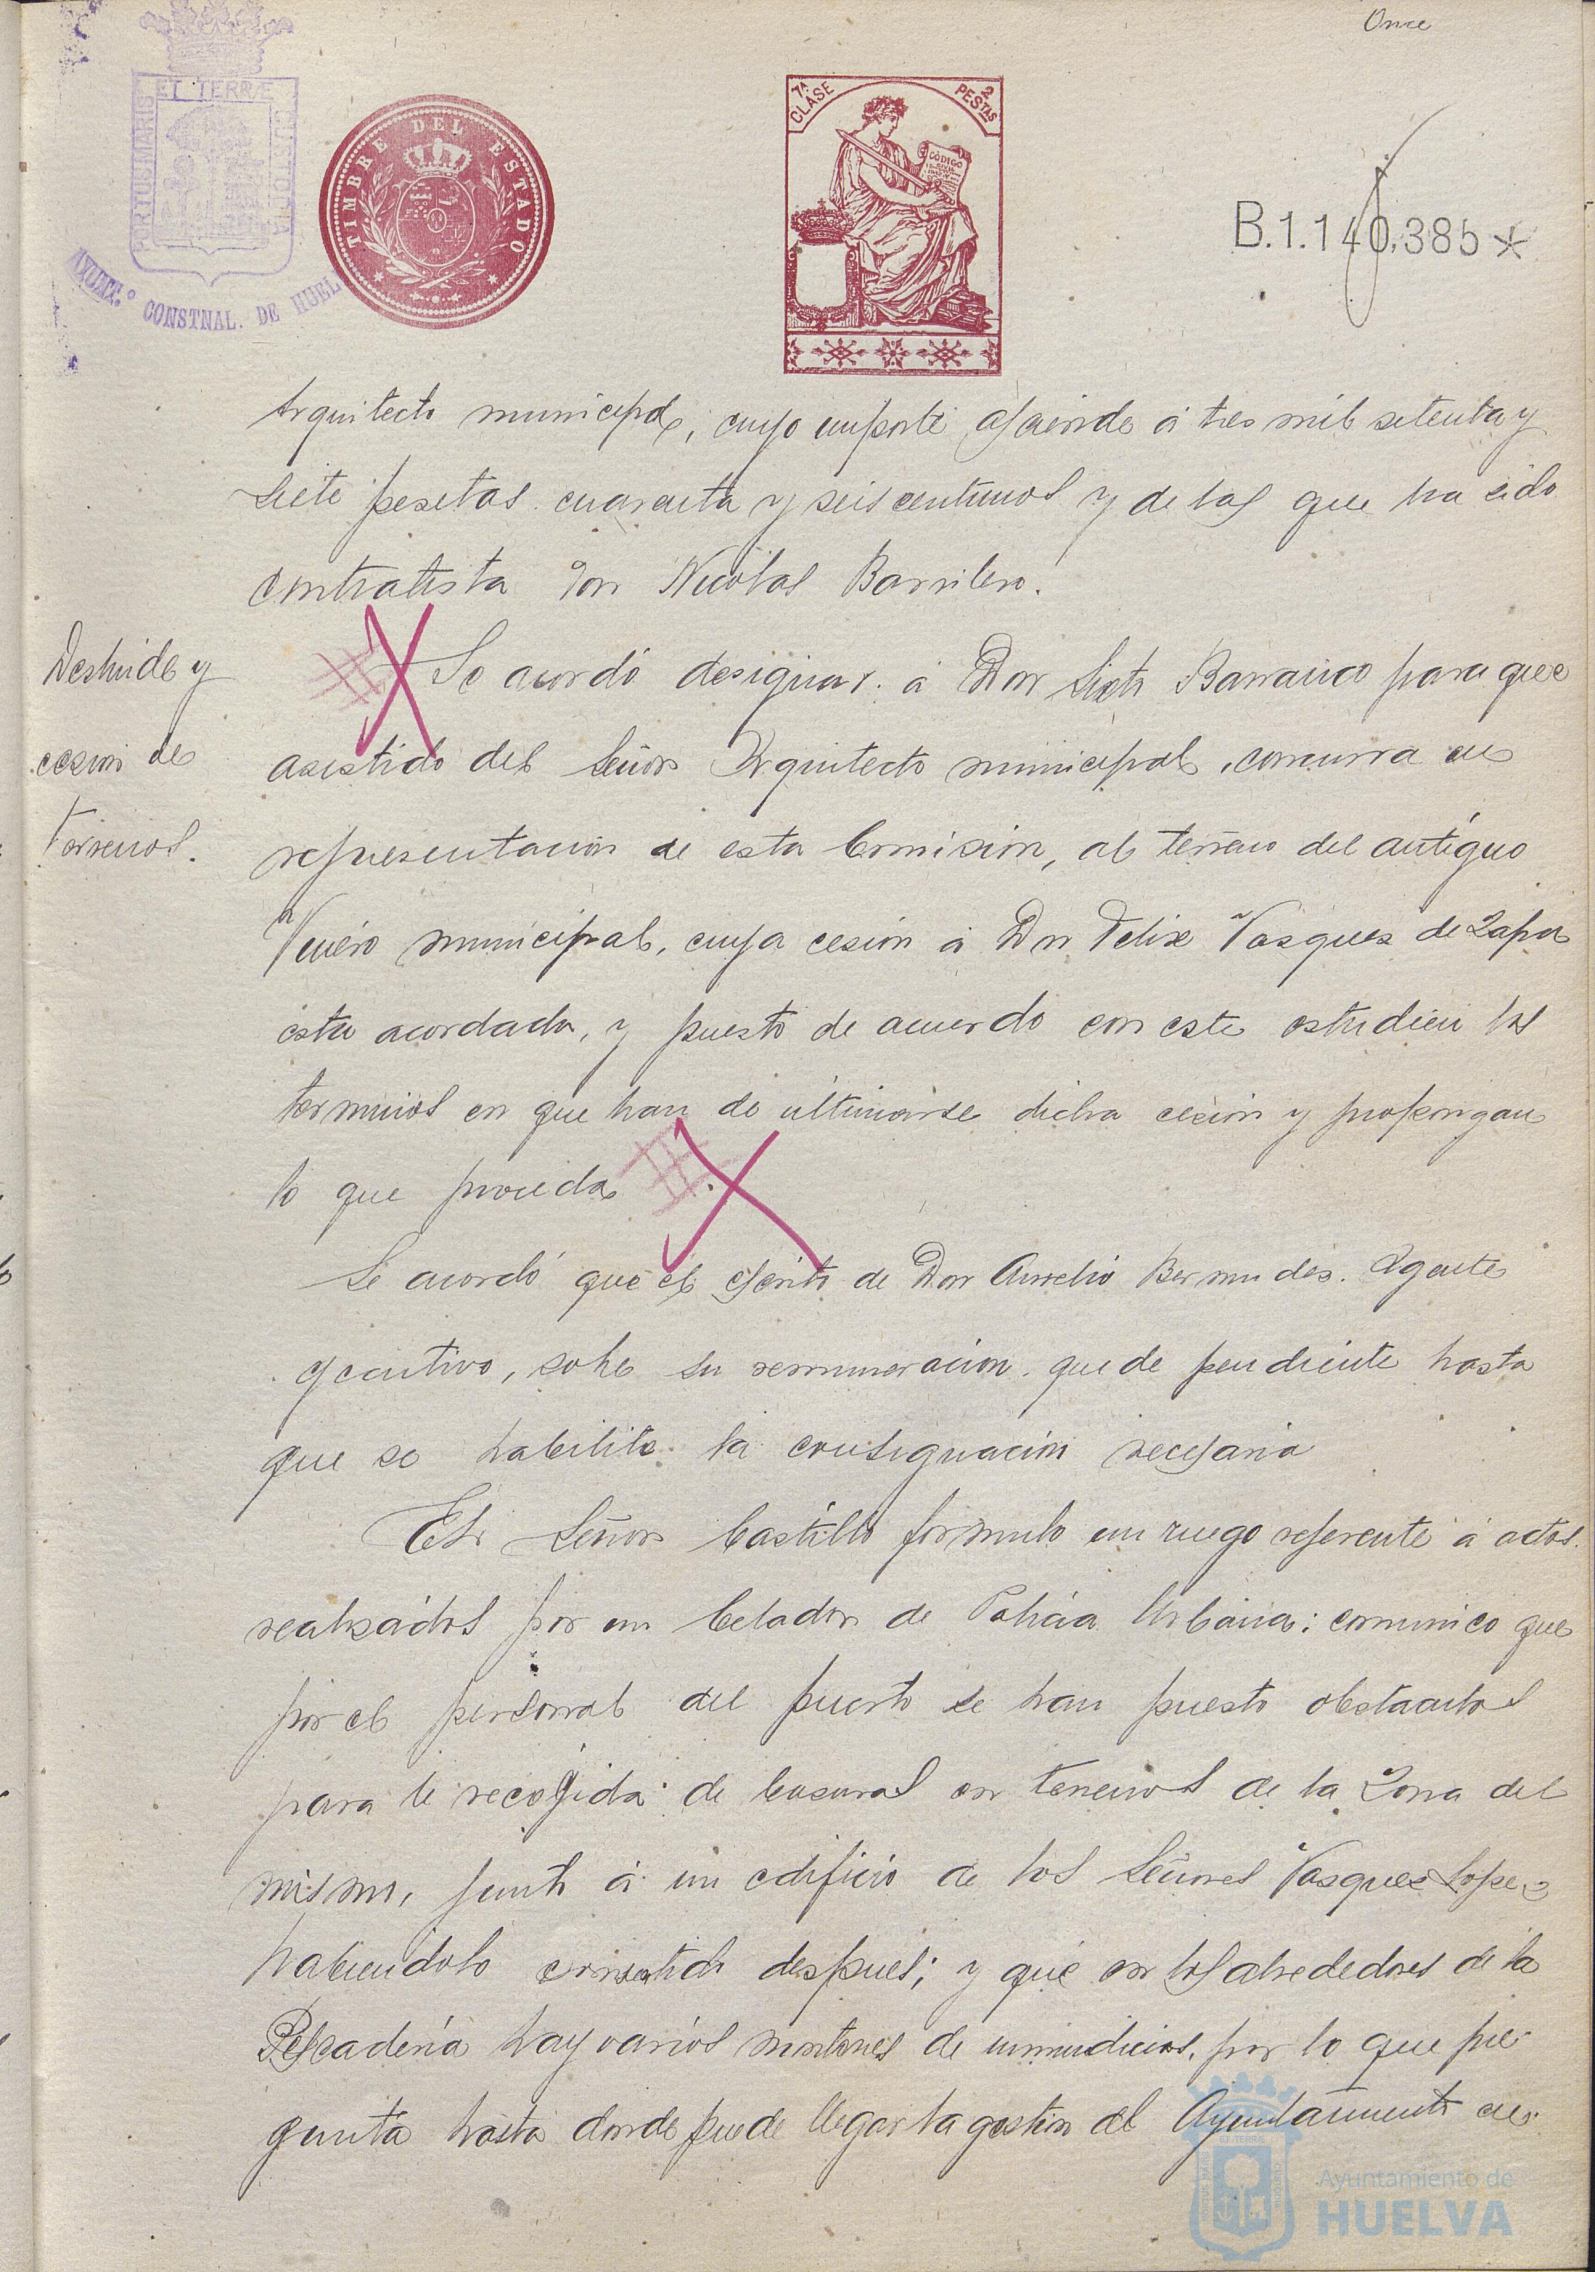 Once
ET TERRÆ
PORTUS MARIS
CUSTODIA
AYUNT.º CONSTNAL. DE HUEL
TIMBRE DEL ESTADO
7ª CLASE
2 PESTAS
CÓDIGO
B.1.140.385*
Arquitecto municipal, cuyo importe asciende á tres mil setenta y
siete pesetas cuarenta y seis centimos y de las que ha sido
contratista Don Nicolas Barrilero.
Deslinde y
cesion de
Terrenos.
Se acordó designar á Don Sixto Barranco para que
asistido del Señor Arquitecto municipal, concurra en
representacion de esta Comisión, al terreno del antiguo
Vivero municipal, cuya cesión á Don Felix Vasquez de Zapa
esta acordada, y puesto de acuerdo con este estudien los
terminos en que han de ultimarse dicha cesión y propongan
lo que proceda
Se acordó que el escrito de Don Aurelio Bermudes. Agente
ejecutivo, sobre su remuneracion quede pendiente hasta
que se habilite la consignación necesaria
El Señor Castillo formulo un ruego referente á actos
realizados por un Celador de Policia Urbana: comunico que
por el personal del puerto se han puesto obstaculos
para la recogida de basuras en terrenos de la Zona del
mismo, junto á un edificio de los Señores Vasquez Lopez
habiendolo consentido despues; y que en los alrededores de la
Pescadería hay varios montones de inmundicias, por lo que pre
gunta hasta donde puede llegar la gestion del Ayuntamiento en
Ayuntamiento de
HUELVA